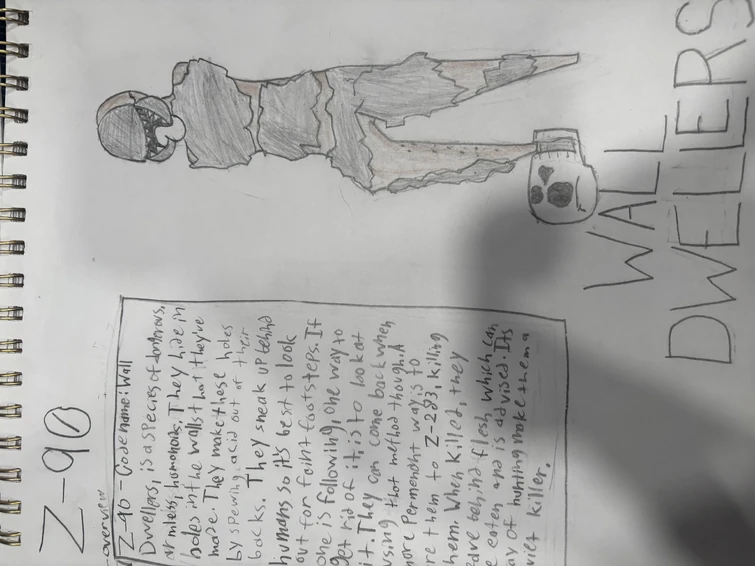 Z-90
overview
Z-90 - Codename: Wall
Dwellers, is a species of
armless, humanoids. They hide in
holes in the walls that they've
made. They make these holes
by spewing acid out of their
backs. They sneak up behind
humans so it's best to look
out for faint footsteps. If
one is following, one way to
get rid of it, is to look at
it. They can come back when
using that method though. A
more permenent way is to
re them to Z-283, killing
them. When killed, they
eave behind flesh, which can
e eaten and is advised. Its
ay of hunting make them a
uiet killer.
WALL
DWELLERS